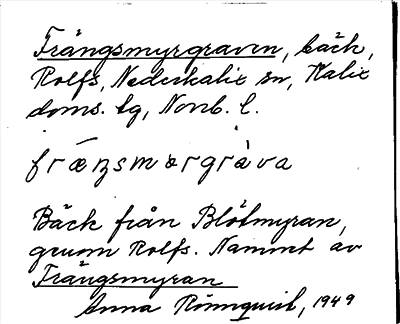 Frängsmyrgraven, bäck,
Rolfs, Nederkalix sn, Kalix
doms. lg, Norrb. l.
fræŋsmərgràva
Bäck från Blötmyran,
genom Rolfs. Namnet av
Frängsmyran
Anna Rönnqvist, 1949